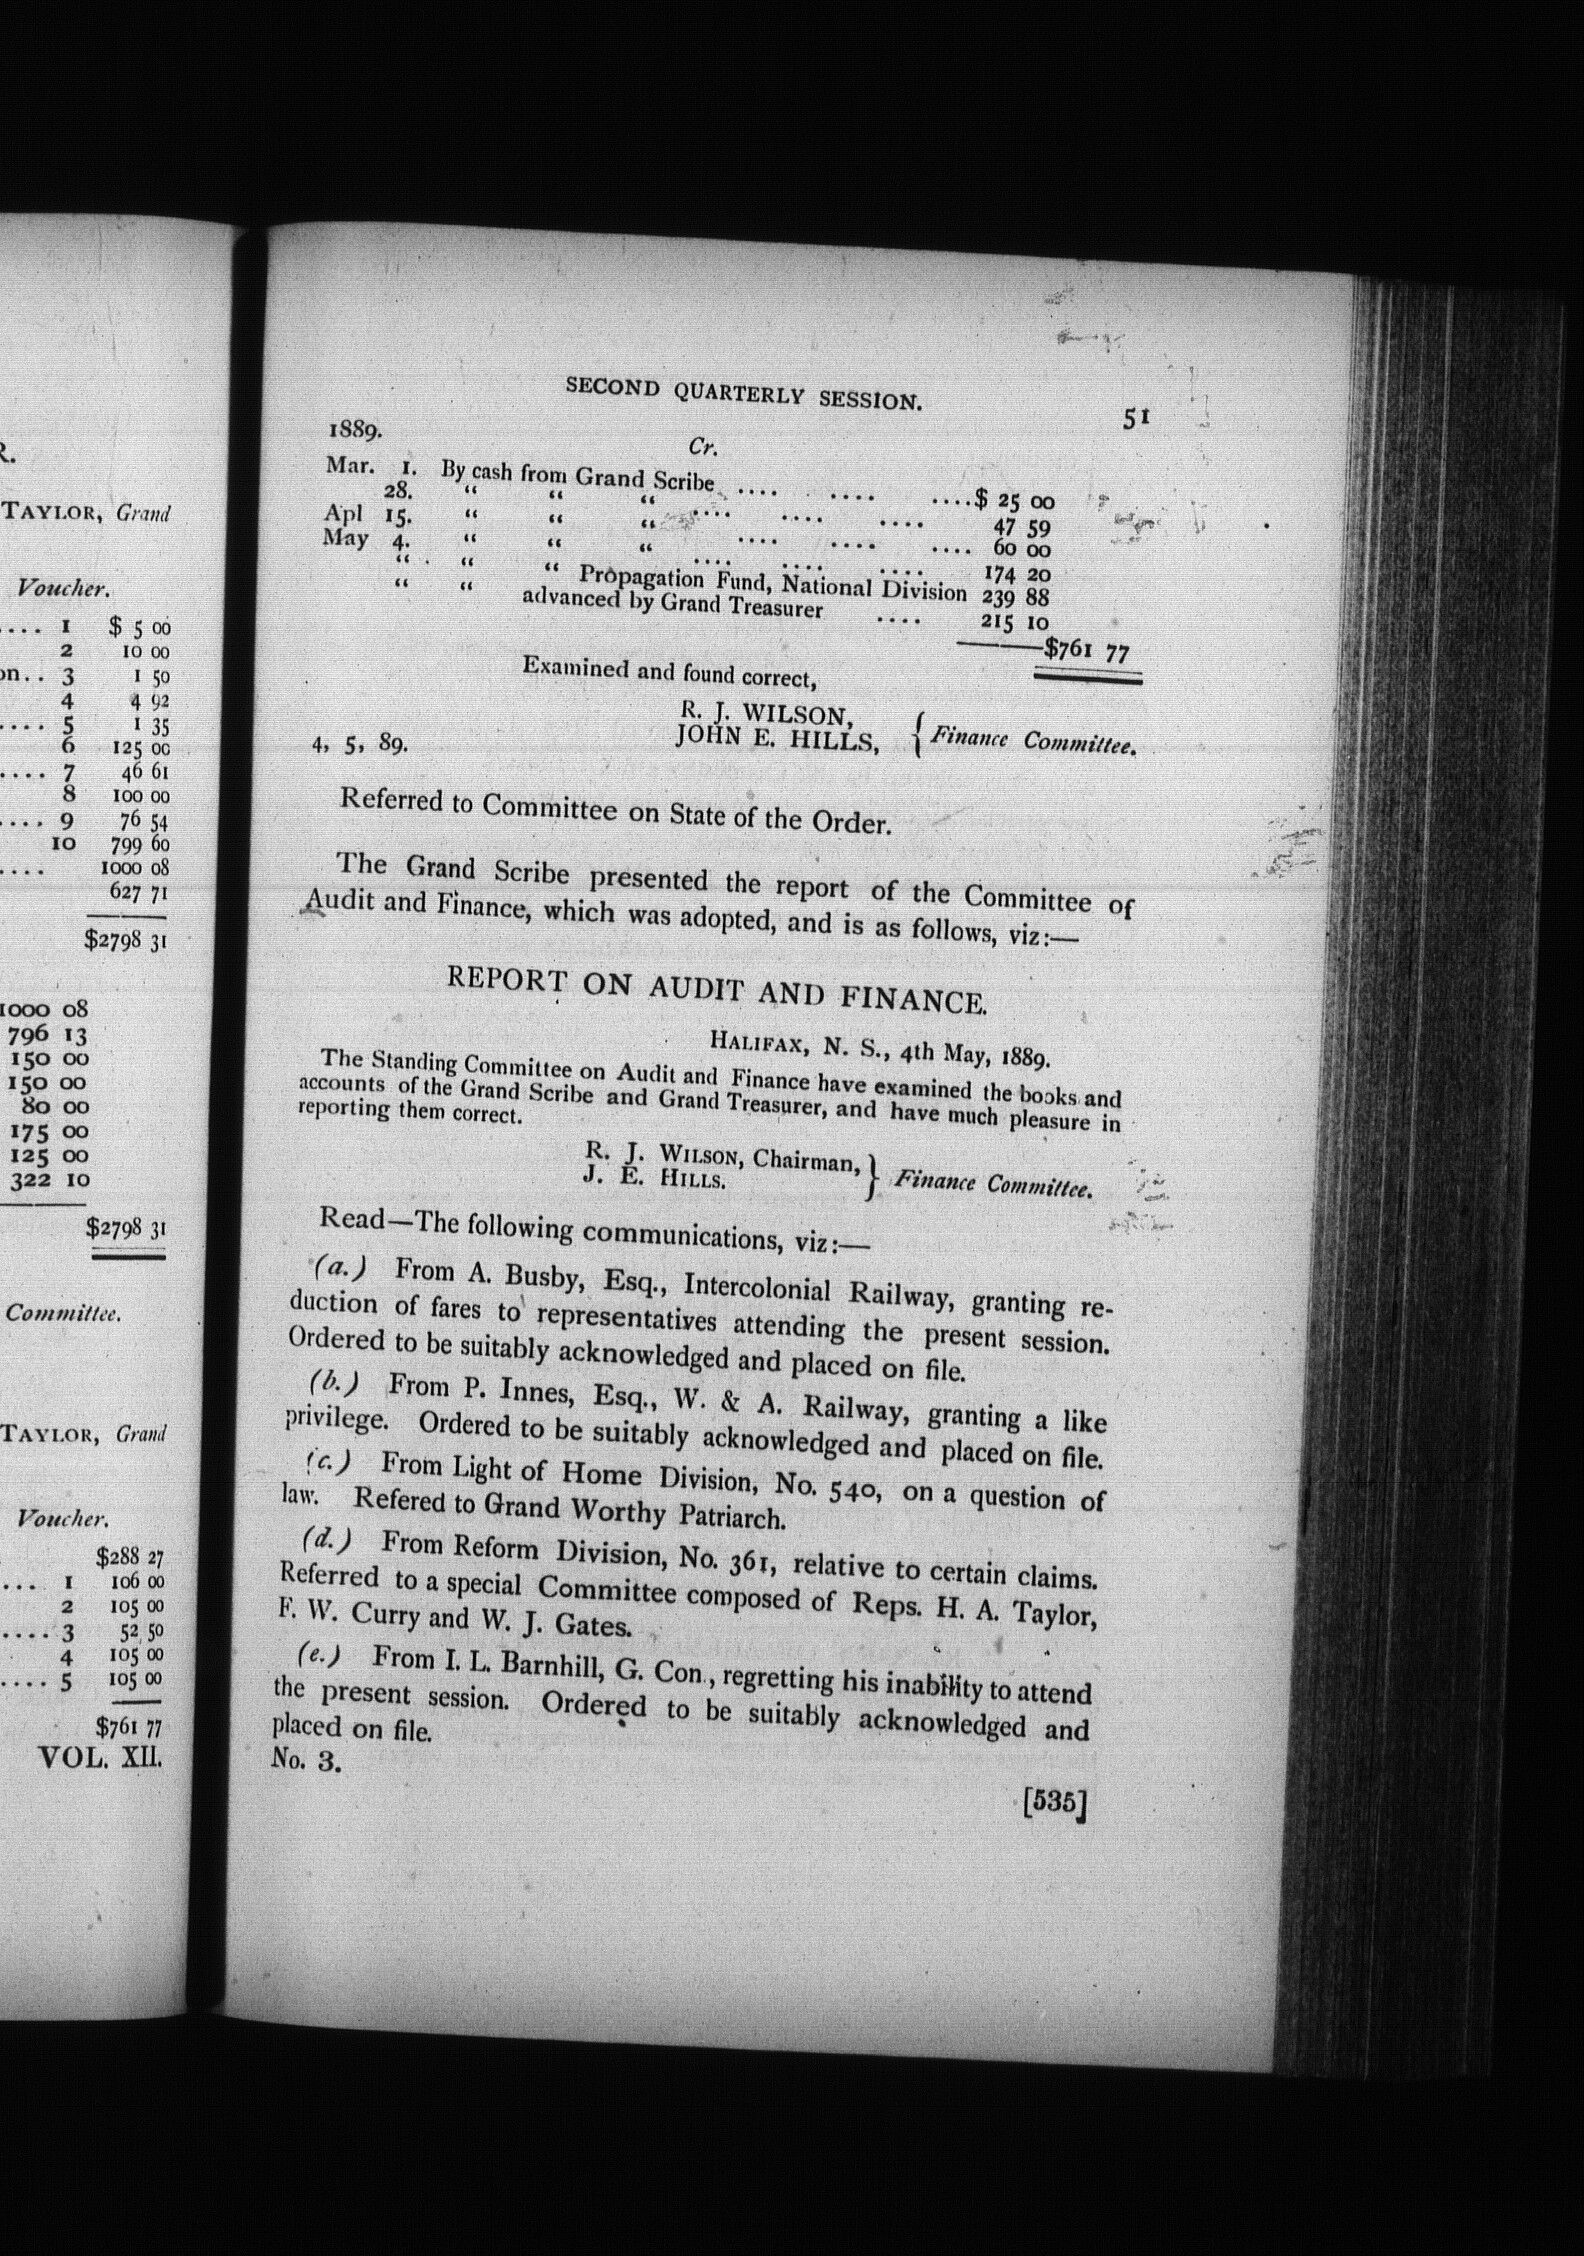 R.
TAYLOR, Grand
Voucher.
.... 1 $ 5 00
2 10 00
on.. 3 1 50
4 4 92
.... 5 1 35
6 125 00
.... 7 46 61
8 100 00
.... 9 76 54
10 799 60
.... 1000 08
627 71
$2798 31
1000 08
796 13
150 00
150 00
80 00
175 00
125 00
322 10
$2798 31
Committee.
TAYLOR, Grand
Voucher.
$288 27
... 1 106 00
2 105 00
.... 3 52 50
4 105 00
.... 5 105 00
$761 77
VOL. XII.
SECOND QUARTERLY SESSION. 51
1889. Cr.
Mar. 1. By cash from Grand Scribe .... .... ....$ 25 00
28. " " " .... .... .... 47 59
Apl 15. " " " .... .... .... 60 00
May 4. " " " .... .... .... 174 20
" " " Propagation Fund, National Division 239 88
" " advanced by Grand Treasurer .... 215 10
$761 77
Examined and found correct,
R. J. WILSON,
JOHN E. HILLS, { Finance Committee.
4, 5, 89.
Referred to Committee on State of the Order.
The Grand Scribe presented the report of the Committee of
Audit and Finance, which was adopted, and is as follows, viz:—
REPORT ON AUDIT AND FINANCE.
HALIFAX, N. S., 4th May, 1889.
The Standing Committee on Audit and Finance have examined the books and
accounts of the Grand Scribe and Grand Treasurer, and have much pleasure in
reporting them correct.
R. J. WILSON, Chairman,
J. E. HILLS. } Finance Committee.
Read—The following communications, viz:—
(a.) From A. Busby, Esq., Intercolonial Railway, granting re-
duction of fares to representatives attending the present session.
Ordered to be suitably acknowledged and placed on file.
(b.) From P. Innes, Esq., W. & A. Railway, granting a like
privilege. Ordered to be suitably acknowledged and placed on file.
(c.) From Light of Home Division, No. 540, on a question of
law. Refered to Grand Worthy Patriarch.
(d.) From Reform Division, No. 361, relative to certain claims.
Referred to a special Committee composed of Reps. H. A. Taylor,
F. W. Curry and W. J. Gates.
(e.) From I. L. Barnhill, G. Con., regretting his inability to attend
the present session. Ordered to be suitably acknowledged and
placed on file.
No. 3.
[535]